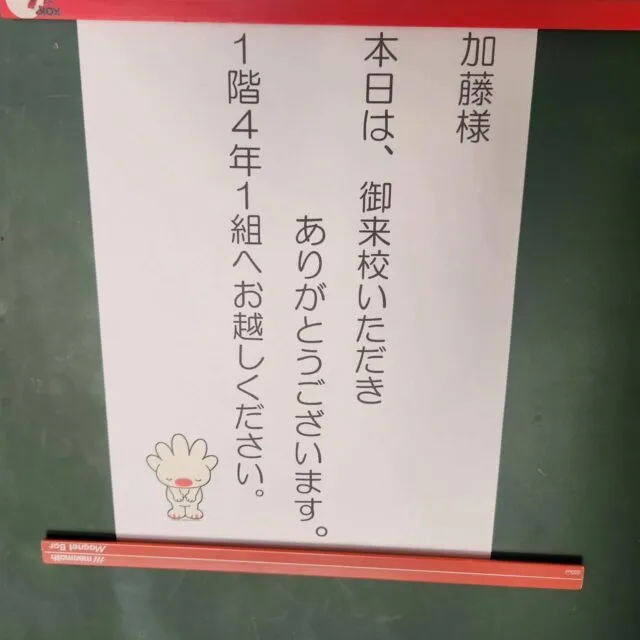 加藤様
本日は、御来校いただき
ありがとうございます。
1階4年1組へお越しください。
/// marmolth
Magnet Bar